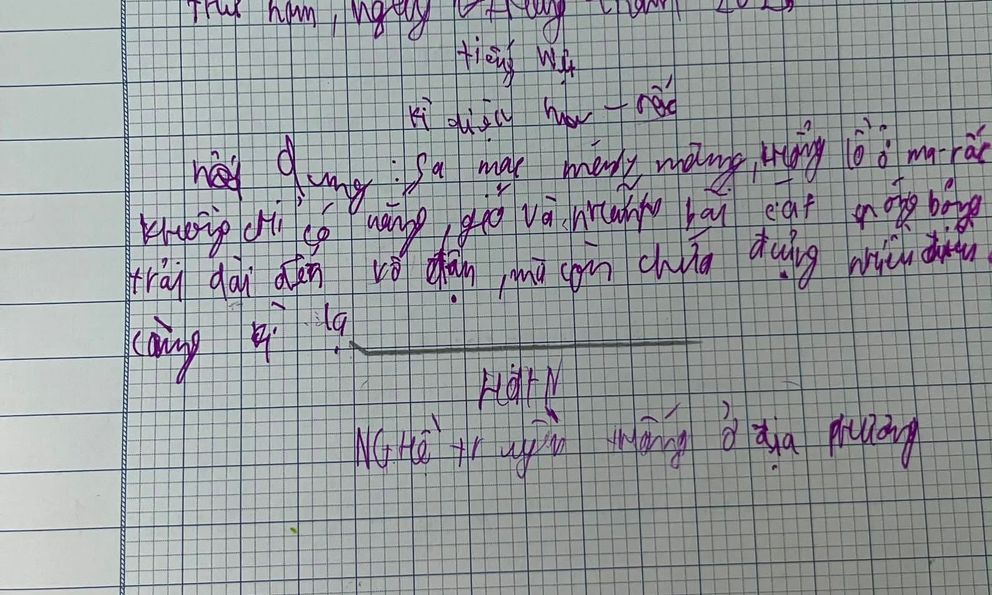 Thứ năm, ngày tháng năm 202
tiếng Việt
kì diệu ma-rốc
nội dung: Sa mạc mênh mông, khổng lồ ở ma-rốc
không chỉ có nắng, gió và những bãi cát nóng bỏng
trải dài đến vô tận, mà còn chứa đựng nhiều điều
càng kì lạ
HĐTN
NGHề truyền thống ở địa phương